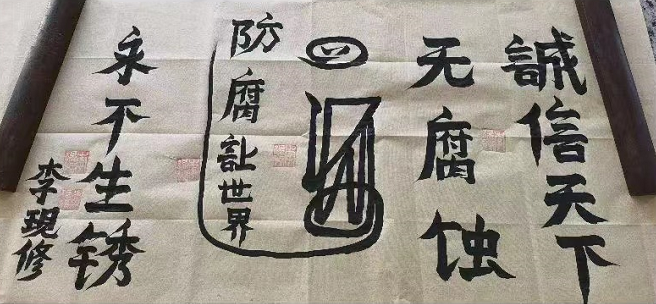 誠信天下
无腐蚀
防腐訨世界
永不生锈
李現修